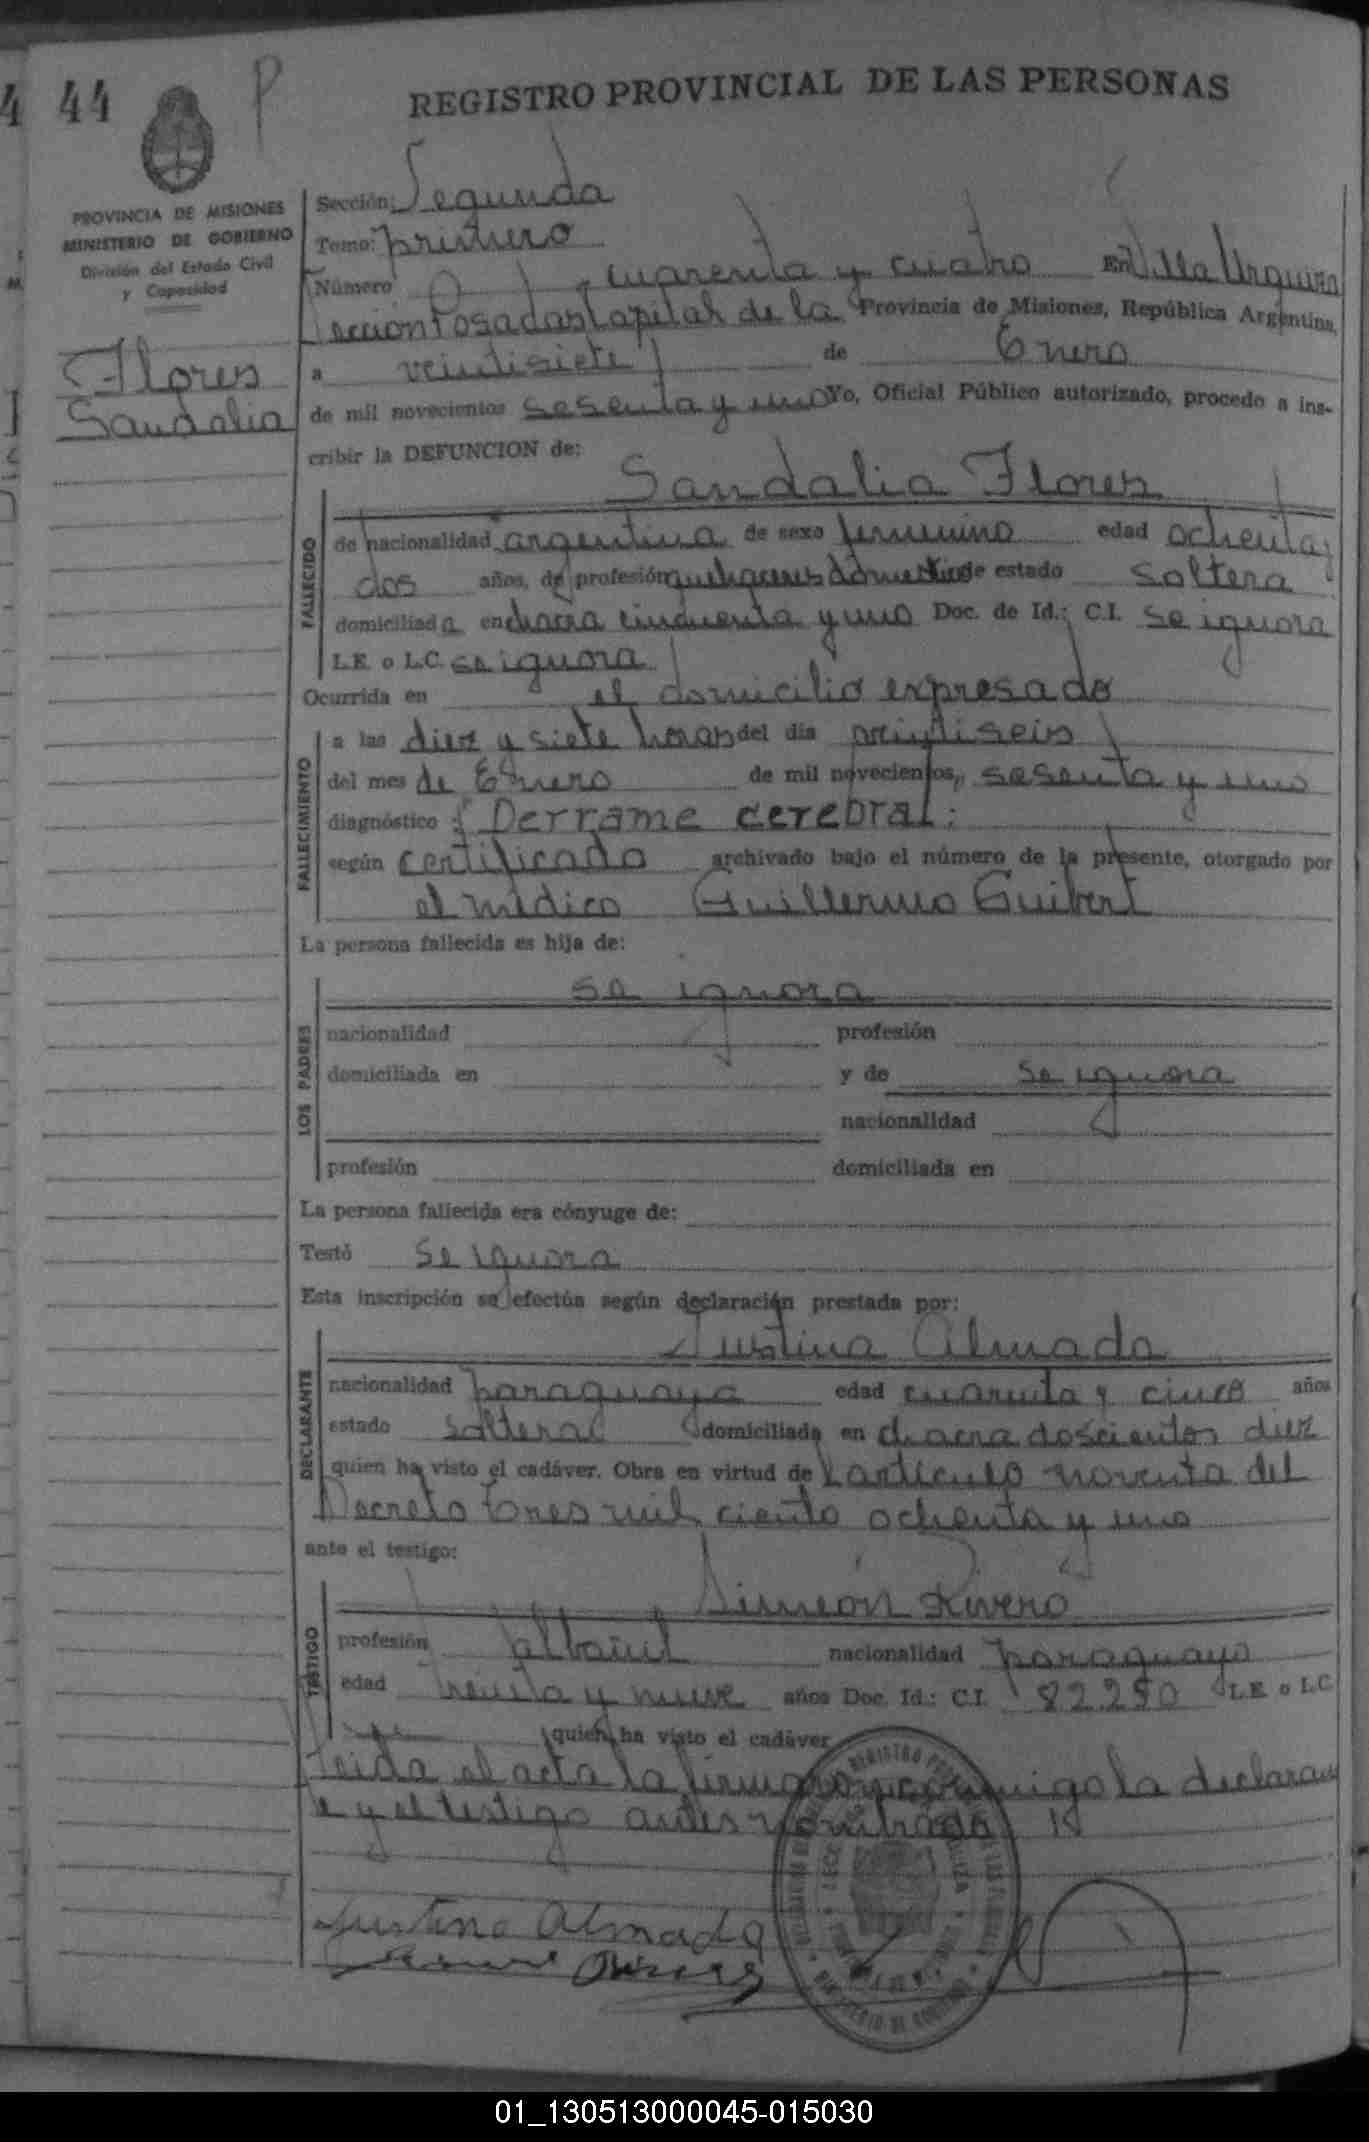 44 P
REGISTRO PROVINCIAL DE LAS PERSONAS
PROVINCIA DE MISIONES
MINISTERIO DE GOBIERNO
División del Estado Civil
y Capacidad
Flores
Sandalia
Sección: Segunda
Tomo: primero
Número cuarenta y cuatro En Villa Urquiza
Seccion Posadas Capital de la Provincia de Misiones, República Argentina,
a veintisiete de Enero
de mil novecientos sesenta y uno Yo, Oficial Público autorizado, procedo a ins-
cribir la DEFUNCION de:
Sandalia Flores
FALLECIDO
de nacionalidad argentina de sexo femenino edad ochenta y
dos años, de profesión quehaceres domesticos de estado soltera
domiciliada en chacra cincuenta y uno Doc. de Id.: C.I. se ignora
L.E. o L.C. se ignora
Ocurrida en el domicilio expresado
FALLECIMIENTO
a las diez y siete horas del día veintiseis
del mes de Enero de mil novecientos, sesenta y uno
diagnóstico: Derrame cerebral:
según certificado archivado bajo el número de la presente, otorgado por
el médico Guillermo Guibert
La persona fallecida es hija de:
LOS PADRES
se ignora
nacionalidad profesión
domiciliada en y de se ignora
nacionalidad
profesión domiciliada en
La persona fallecida era cónyuge de:
Testó se ignora
Esta inscripción se efectúa según declaración prestada por:
DECLARANTE
Justina Almada
nacionalidad paraguaya edad cuarenta y cinco años
estado soltera domiciliada en chacra doscientos diez
quien ha visto el cadáver. Obra en virtud de l articulo noventa del
Decreto tres mil ciento ochenta y uno
ante el testigo:
TESTIGO
Simeón Rivero
profesión albañil nacionalidad paraguayo
edad treinta y nueve años Doc. Id.: C.I. 82.250 L.E. o L.C.
quien ha visto el cadáver
Leida el acta la firmaron conmigo la declaran
te y el testigo antes nombrado
Justina Almada
REGISTRO
MINISTERIO DE GOBIERNO
01_130513000045-015030